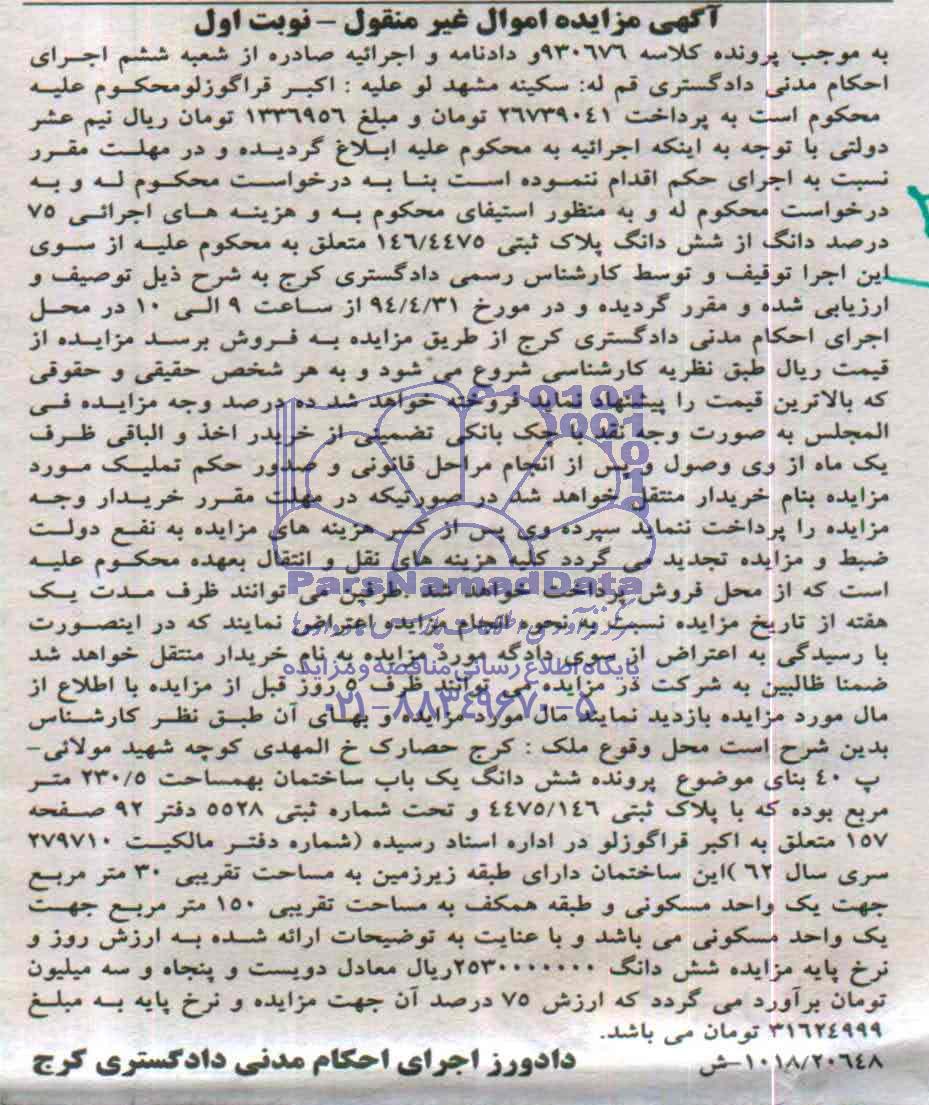 آگهی مزایده اموال غیر منقول - نوبت اول
به موجب پرونده کلاسه ۹۳۰۶۷۶و دادنامه و اجرائیه صادره از شعبه ششم اجرای
احکام مدنی دادگستری قم له: سکینه مشهد لو علیه : اکبر قراگوزلومحکوم علیه
محکوم است به پرداخت ۲۶۷۳۹۰۴۱ تومان و مبلغ ۱۳۳۶۹۵۶ تومان ریال نیم عشر
دولتی با توجه به اینکه اجرائیه به محکوم علیه ابلاغ گردیده و در مهلت مقرر
نسبت به اجرای حکم اقدام ننموده است بنا به درخواست محکوم له و به
درخواست محکوم له و به منظور استیفای محکوم به و هزینه های اجرائی ۷۵
درصد دانگ از شش دانگ پلاک ثبتی ۱۴۶/۴۴۷۵ متعلق به محکوم علیه از سوی
این اجرا توقیف و توسط کارشناس رسمی دادگستری کرج به شرح ذیل توصیف و
ارزیابی شده و مقرر گردیده و در مورخ ۹۴/۴/۳۱ از ساعت ۹ الی ۱۰ در محل
اجرای احکام مدنی دادگستری کرج از طریق مزایده به فروش برسد مزایده از
قیمت ریال طبق نظریه کارشناسی شروع می شود و به هر شخص حقیقی و حقوقی
که بالاترین قیمت را پیشنهاد نماید فروخته خواهد شد ده درصد وجه مزایده فی
المجلس به صورت وجه نقد یا چک بانکی تضمینی از خریدر اخذ و الباقی ظرف
یک ماه از وی وصول و پس از انجام مراحل قانونی و صدور حکم تملیک مورد
مزایده بنام خریدار منتقل خواهد شد در صورتیکه در مهلت مقرر خریدار وجه
مزایده را پرداخت ننماید سپرده وی پس از کسر هزینه های مزایده به نفع دولت
ضبط و مزایده تجدید می گردد کلیه هزینه های نقل و انتقال بعهده محکوم علیه
است که از محل فروش پرداخت خواهد شد .طرفین می توانند ظرف مدت یک
هفته از تاریخ مزایده نسبت به نحوه انجام مزایده اعتراض نمایند که در اینصورت
با رسیدگی به اعتراض از سوی دادگه مورد مزایده به نام خریدار منتقل خواهد شد
ضمنا طالبین به شرکت در مزایده می توانند ظرف ۵ روز قبل از مزایده با اطلاع از
مال مورد مزایده بازدید نمایند مال مورد مزایده و بهای آن طبق نظر کارشناس
بدین شرح است محل وقوع ملک : کرج حصارک خ المهدی کوچه شهید مولائی-
پ ۴۰ بنای موضوع پرونده شش دانگ یک باب ساختمان بهمساحت ۲۳۰/۵ متر
مربع بوده که با پلاک ثبتی ۴۴۷۵/۱۴۶ و تحت شماره ثبتی ۵۵۲۸ دفتر ۹۲ صفحه
۱۵۷ متعلق به اکبر قراگوزلو در اداره اسناد رسیده (شماره دفتر مالکیت ۲۷۹۷۱۰
سری سال ۶۲ )این ساختمان دارای طبقه زیرزمین به مساحت تقریبی ۳۰ متر مربع
جهت یک واحد مسکونی و طبقه همکف به مساحت تقریبی ۱۵۰ متر مربع جهت
یک واحد مسکونی می باشد و با عنایت به توضیحات ارائه شده به ارزش روز و
نرخ پایه مزایده شش دانگ ۲۵۳۰۰۰۰۰۰۰ریال معادل دویست و پنجاه و سه میلیون
تومان برآورد می گردد که ارزش ۷۵ درصد آن جهت مزایده و نرخ پایه به مبلغ
۳۱۶۲۴۹۹۹ تومان می باشد.
۱۰۱۸/۲۰۶۴۸-ش دادورز اجرای احکام مدنی دادگستری کرج
ParsNamadData
پایگاه اطلاع رسانی مناقصه و مزایده
۰۲۱-۸۸۳۴۹۶۷۰-۵